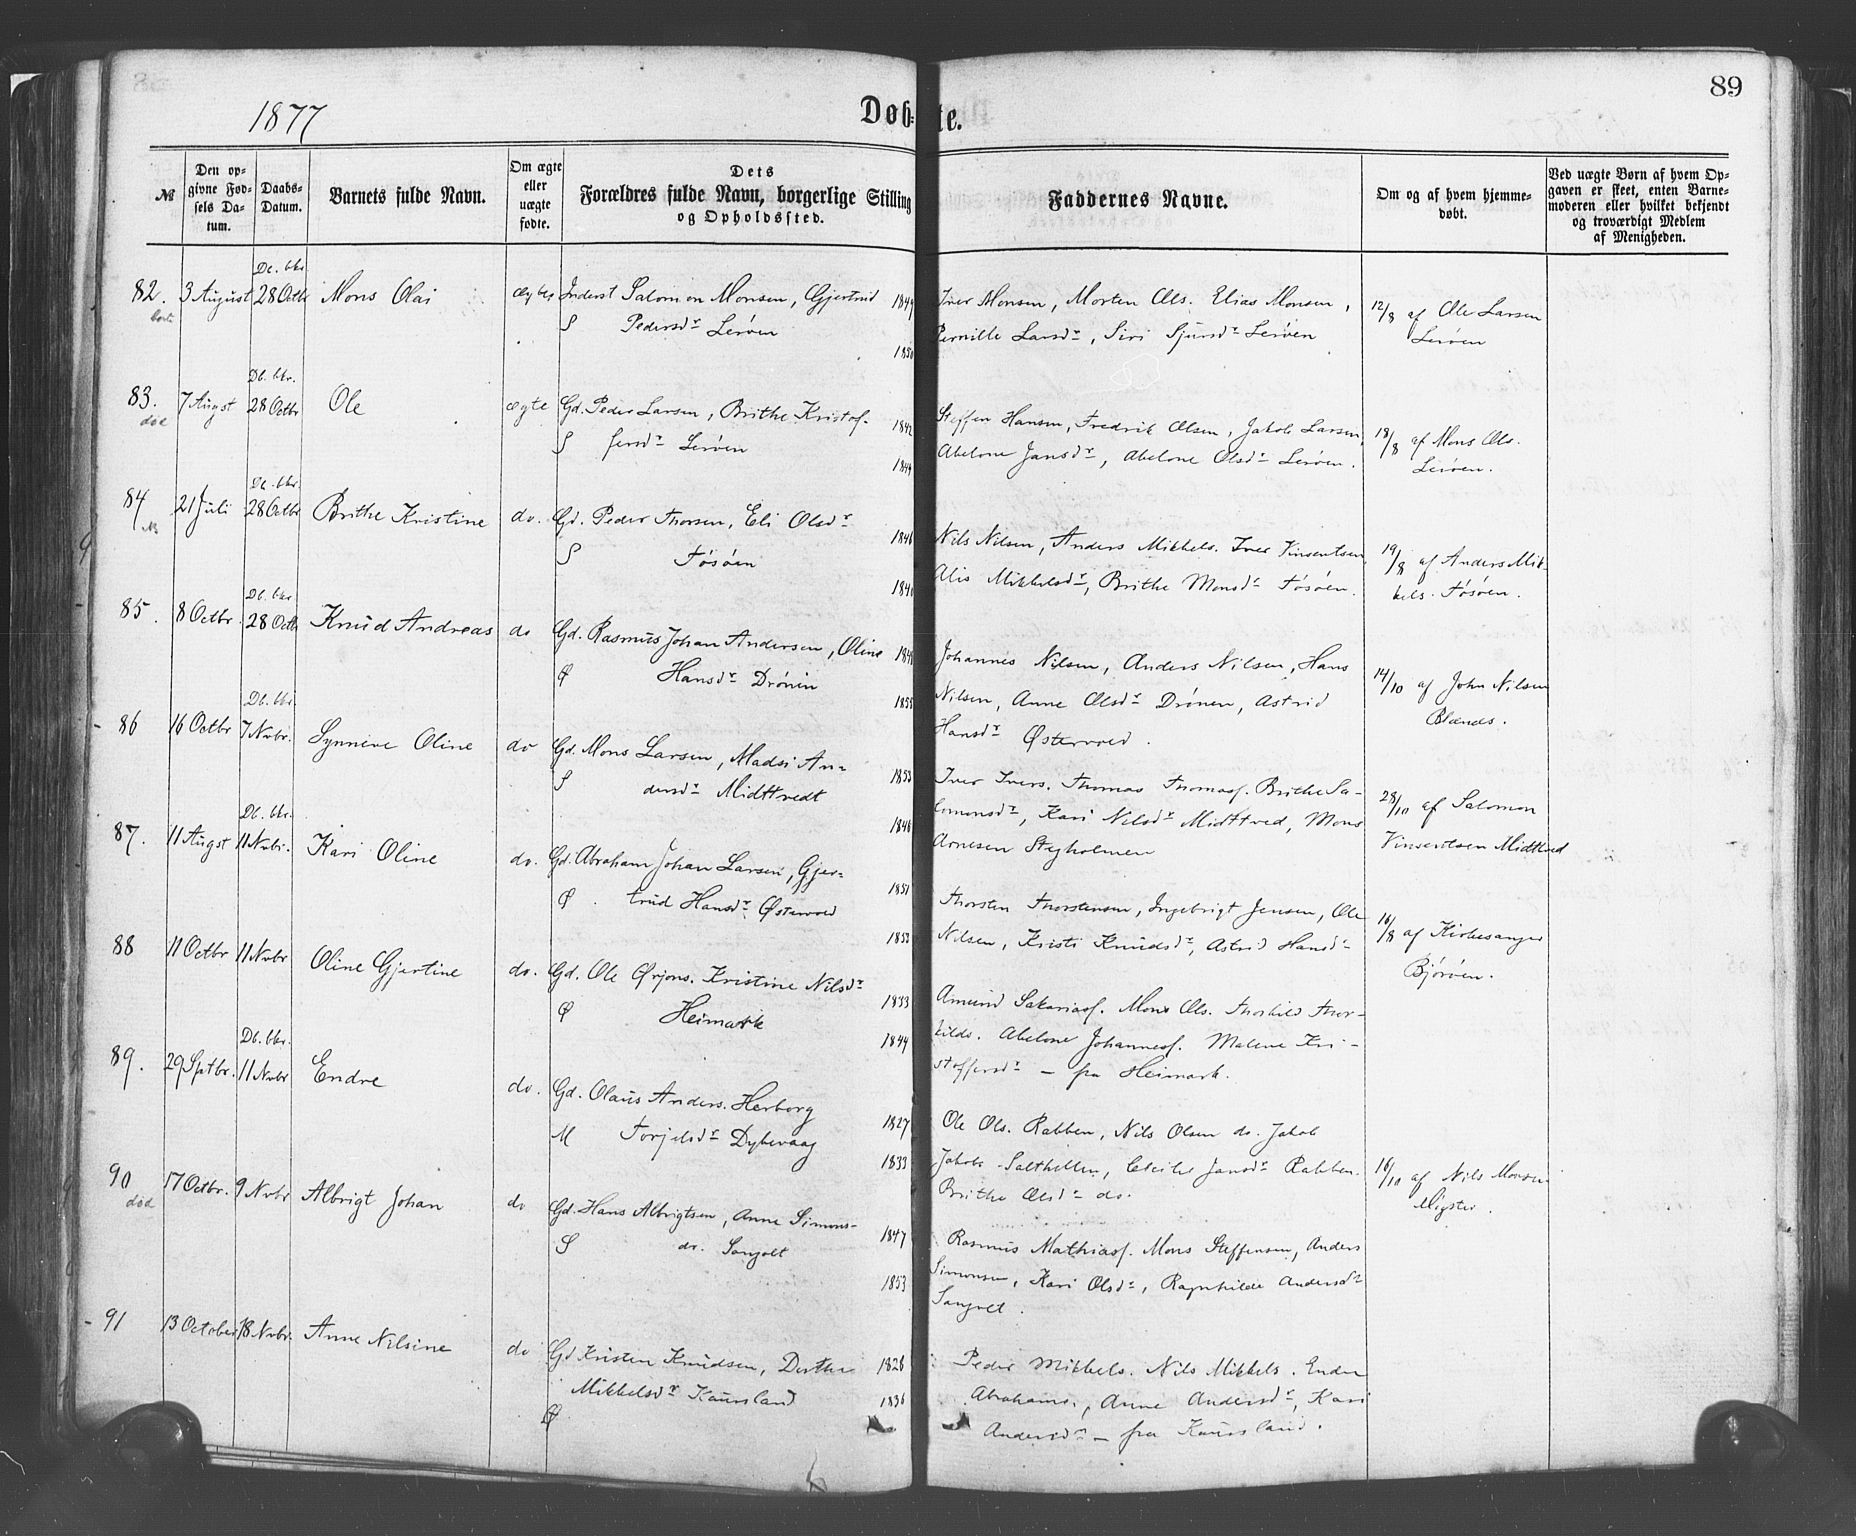 89
1877
Døb-te.
№
Den op-
givne Fød-
sels Da-
tum.
Daabs-
Datum.
Barnets fulde Navn.
Om ægte
eller
uægte
fødte.
Dets
Forældres fulde Navn, borgerlige Stilling
og Opholdssted.
Faddernes Navne.
Om og af hvem hjemme-
døbt.
Ved uægte Børn af hvem Op-
gaven er skeet, enten Barne-
moderen eller hvilket bekjendt
og troværdigt Medlem
af Menigheden.
Db. bkr.
82. 3 August 28 Octbr Mons Olai Inderst Salomon Monsen, Gjertrud 1849
S Pedersdr Lerøen 1850
Iver Monsen, Morten Ols. Elias Monsen,
Pernille Larsdr, Siri Sjursdr Lerøen
12/8 af Ole Larsen
Lerøen
Db. bkr.
83. 7 Augst 28 Octbr Ole ægte Gd. Peder Larsen, Brithe Kristof- 1842
død S fersdr Lerøen 1844
Steffen Hansen, Fredrik Olsen, Jakob Larsen,
Abelone Jansdr, Abelone Olsdr Lerøen.
18/8 af Mons Ols.
Lerøen.
Db. bkr.
84 21 Juli 28 Octbr Brithe Kristine do. Gd. Peder Thorsen, Eli Olsdr 1846
S Tøsøen 1840
Nils Nilsen, Anders Mikkels. Iver Vinsentsen
Alis Mikkelsdr, Brithe Monsdr Tøsøen.
19/8 af Anders Mik-
kels. Tøsøen.
Db. bkr.
85. 8 Octbr. 28 Octb Knud Andreas do Gd. Rasmus Johan Andersen, Oline
Ø Hansdr Drønen 1855
Johannes Nilsen, Anders Nilsen, Hans
Nilsen, Anne Olsdr Drønen, Astrid
Hansdr Østervold.
14/10 af John Nilsen
Blænes.
Db. bkr.
86 16 Octbr 7 Nvbr. Synneve Oline do Gd. Mons Larsen, Madsi An- 1853
S dersdr Midttvedt 1846
Iver Ivers. Thomas Thomass. Brithe Sa-
lomonsdr, Kari Nilsdr Midttved, Mons
Arnesen Stegholmen
28/10 af Salomon
Vinsentsen Midttved
Db. bkr.
87. 11 Augst 11 Nvbr. Kari Oline do. Gd. Abraham Johan Larsen, Gjer- 1851
Ø trud Hansdr Østervold 1853
Thorsten Thorstensen, Ingebrigt Jensen, Ole
Nilsen, Kristi Knudsdr, Astrid Hansdr
16/8 af Kirkesanger
Bjørøen.
88 11 Octbr 11 Nvbr Oline Gjertine do. Gd. Ole Ørjans. Kristine Nilsdr 1833
Ø Heimark 1844
Amund Sakariass. Mons Ols. Thorkild Thor-
kilds. Abelone Johanness. Malene Kri-
stoffersdr – fra Heimark.
Db. bkr.
89. 29 Sptbr. 11 Nvbr Endre do. Gd. Olaus Anders. Herborg 1827
M Torjelsdr Dybevaag 1833
Ole Ols. Rabben, Nils Olsen do. Jakob
Jakobs. Salthellen, Cecilie Jansdr Rabben.
Brithe Olsdr do.
16/10 af Nils Monsen
Møgster.
90 17 Octbr. 9 Nvbr Albrigt Johan do Gd. Hans Albrigtsen, Anne Simons- 1847
død S dr. Sangolt 1853
Rasmus Mathiass. Mons Steffensen, Anders
Simonsen, Kari Olsdr, Ragnhilde Andersdr
Sangolt.
91 13 October 18 Nvbr. Anne Nilsine do Gd Kristen Knudsen, Dorthe 1826
Mikkelsdr Kaursland 1836
Ø
Peder Mikkels. Nils Mikkels. Endre
Abrahams., Anne Andersdr, Kari
Andersdr – fra Kaursland.